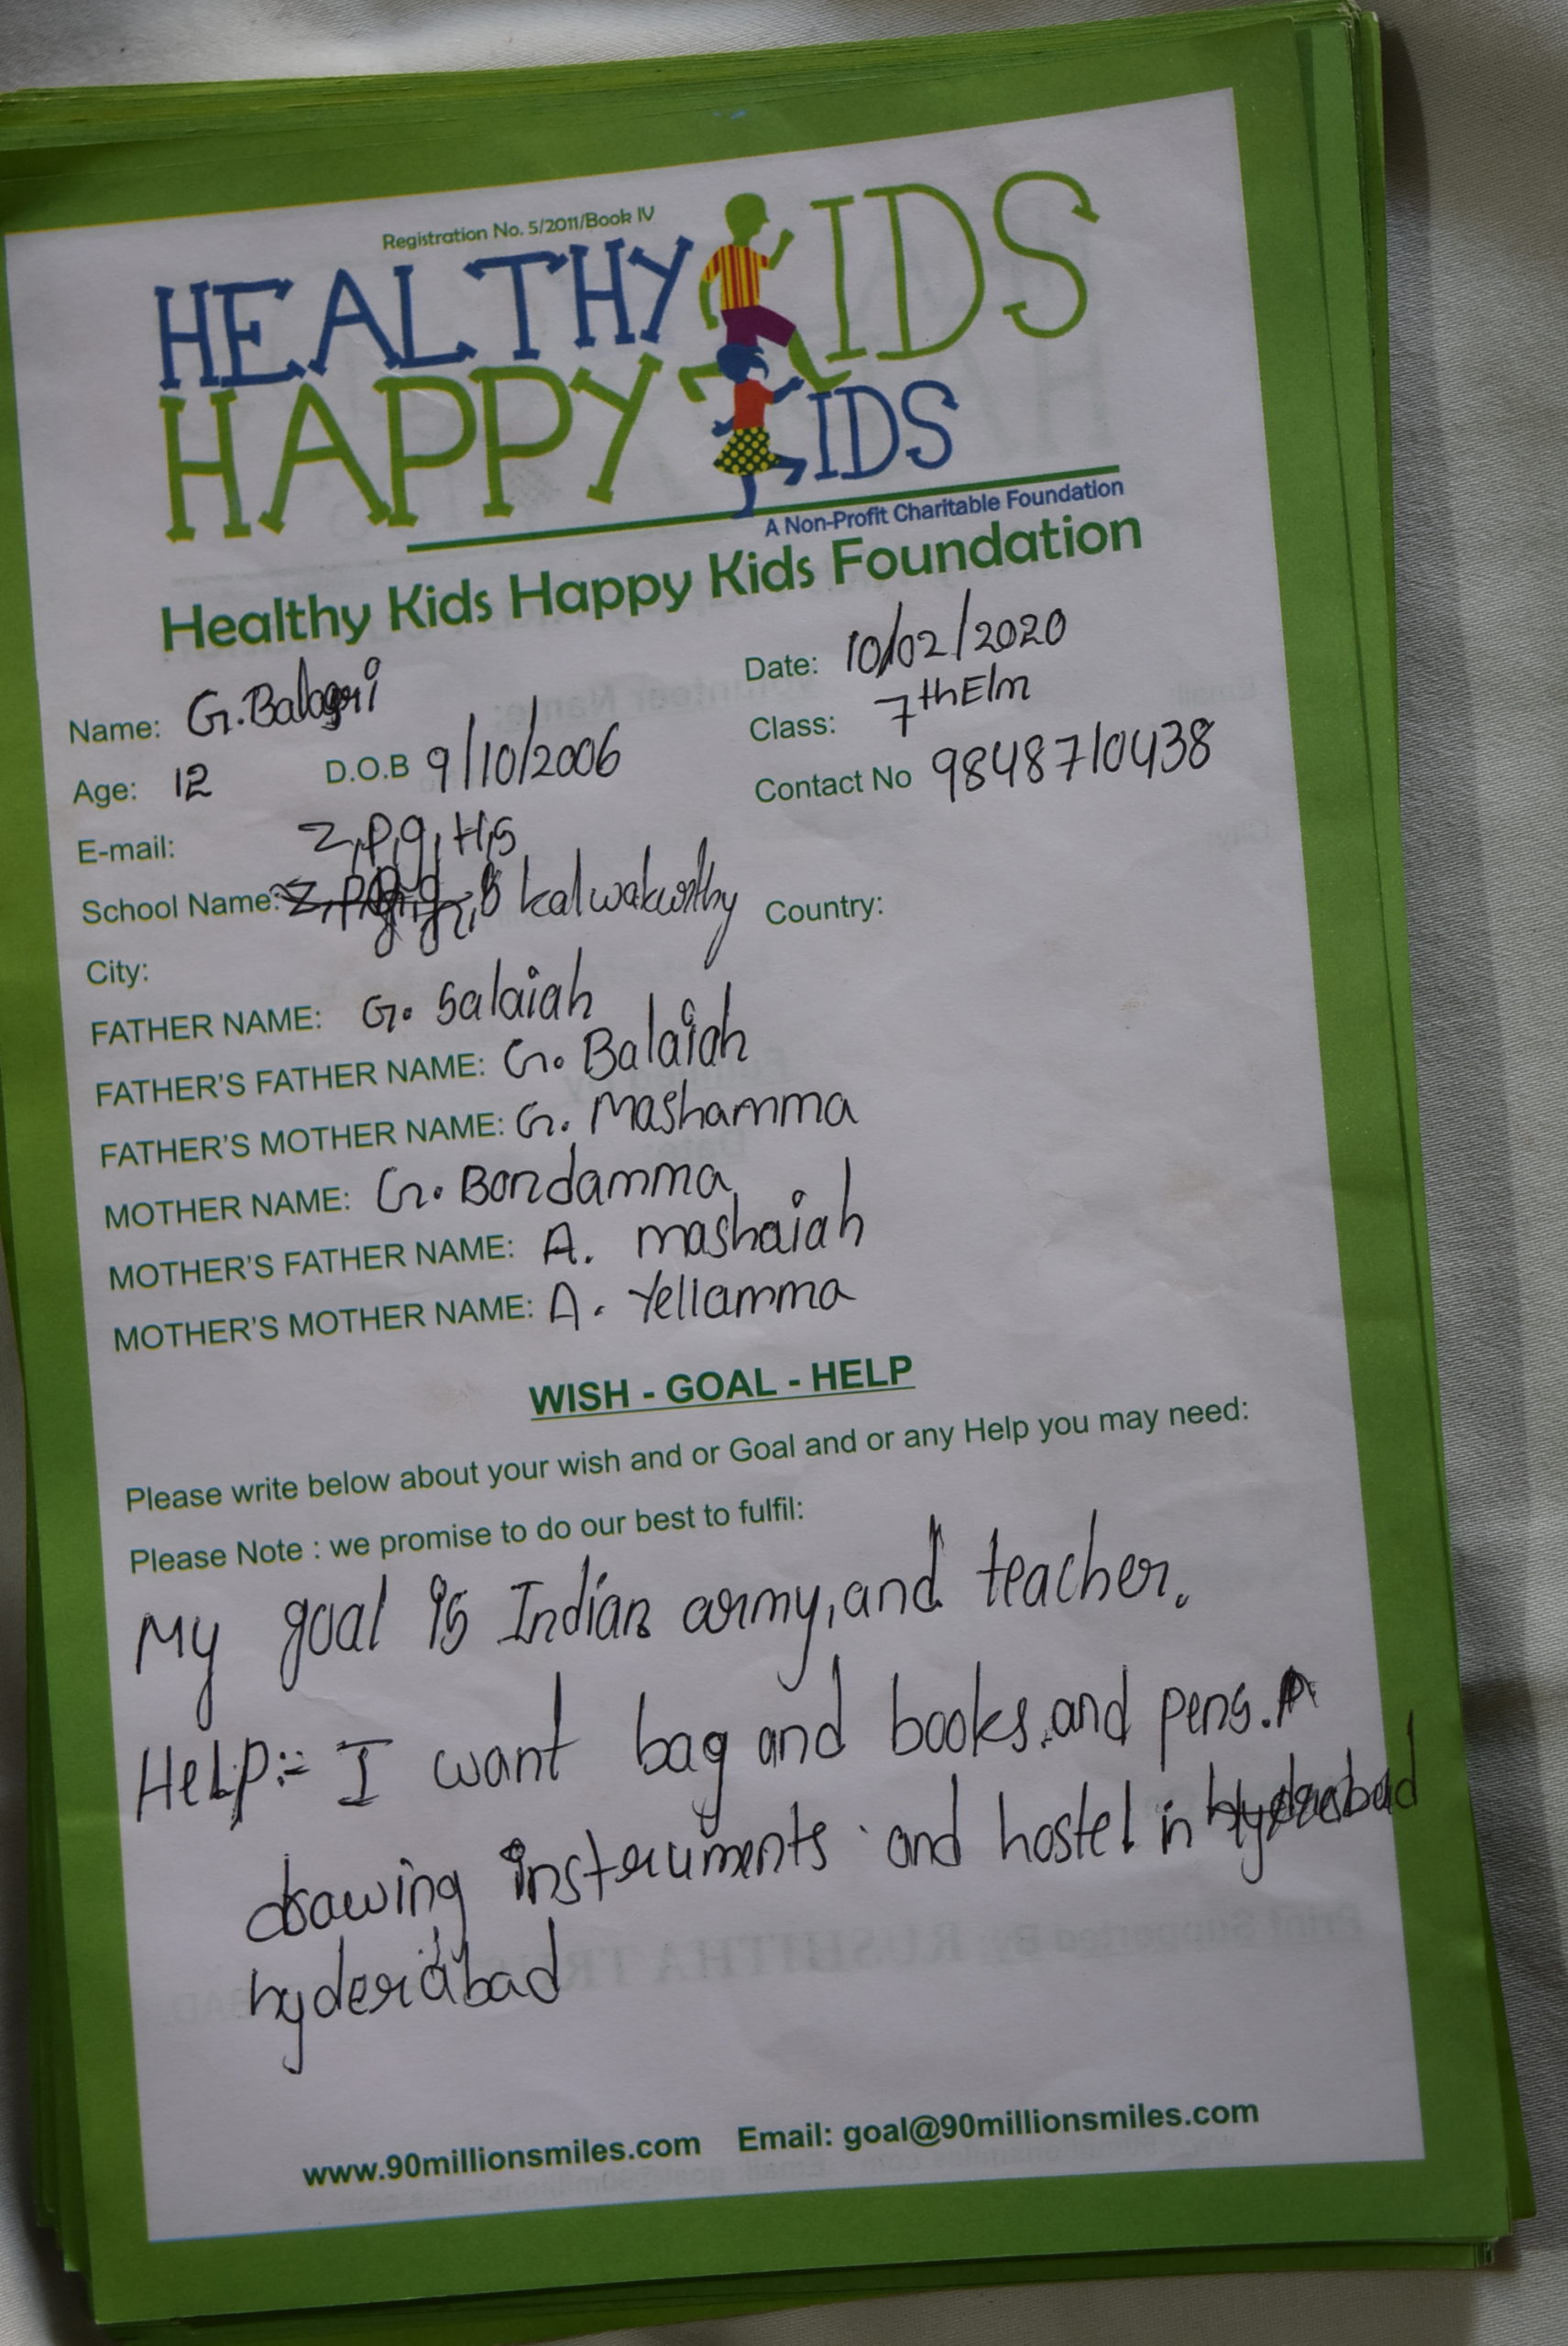 Registration No. 5/2011/Book IV
HEALTHY KIDS
HAPPY KIDS
A Non-Profit Charitable Foundation
Healthy Kids Happy Kids Foundation
Name: G. Date: 10/02/2020
Age: 12 D.O.B 9/10/2006 Class: 7th Elm
E-mail: Contact No 9848710438
Z,P,g,H,S
School Name: kalwakurthy Country:
City:
FATHER NAME: G. Salaiah
FATHER'S FATHER NAME: G. Balaiah
FATHER'S MOTHER NAME: G. Mashamma
MOTHER NAME: G. Bondamma
MOTHER'S FATHER NAME: A. mashaiah
MOTHER'S MOTHER NAME: A. Yellamma
WISH - GOAL - HELP
Please write below about your wish and or Goal and or any Help you may need:
Please Note : we promise to do our best to fulfil:
My goal is Indian army, and teacher.
Help:- I want bag and books, and pens.
drawing instruments and hostel in
hyderabad
www.90millionsmiles.com Email: goal@90millionsmiles.com